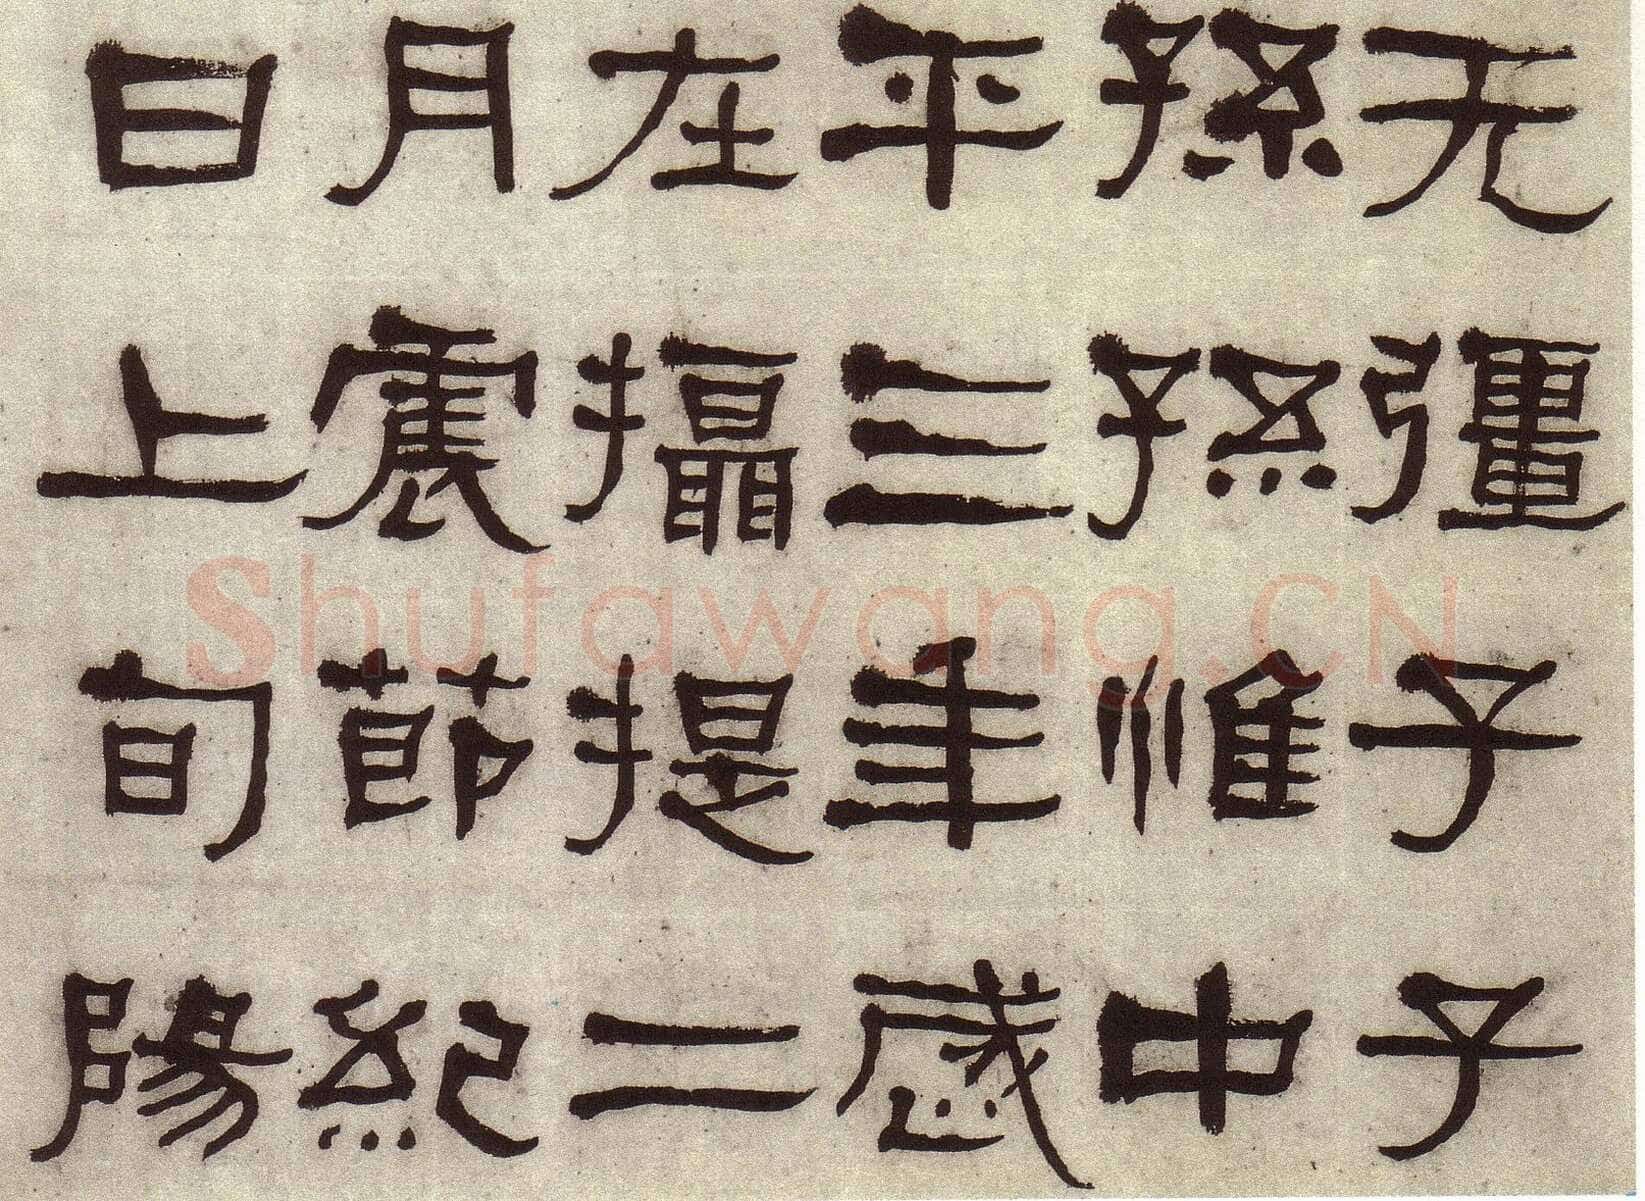 无彊子子
孫孫惟中
平三年歲
在攝提二
月震節紀
日上旬陽
Shufawang.CN